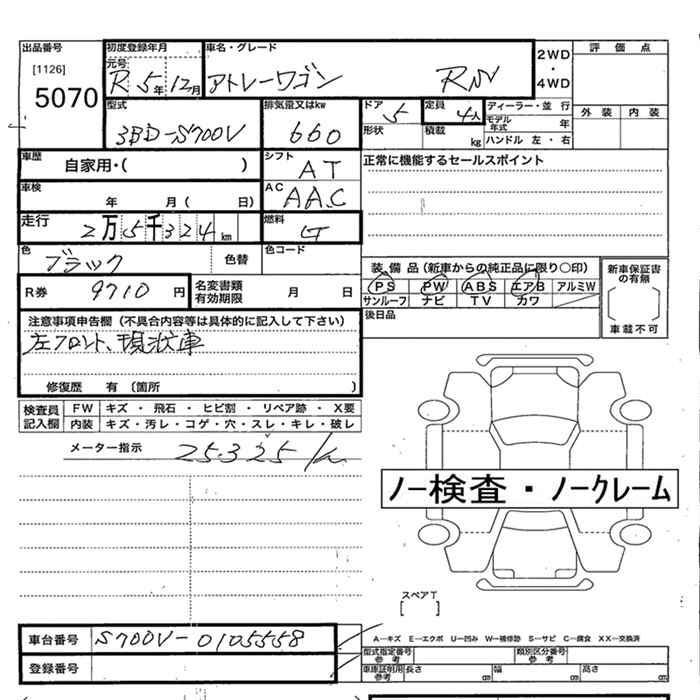 出品番号 初度登録年月 車名・グレード 2WD・4WD 評価点
[1126] 元号
5070 R 5年12月 アトレーワゴン
型式 排気量又はkw ドア 定員 ディーラー・並行 外装 内装
3BD-S700V 660 5 4人 モデル年式 年
形状 積載 kg ハンドル 左・右
車歴 自家用・( ) シフト AT 正常に機能するセールスポイント
車検 年 月( 日) AC AAC
走行 2万5千324km 燃料 G
色 ブラック 色替 色コード
装備品(新車からの純正品に限り○印) 新車保証書の有無
R券 9710円 名変書類有効期限 月 日 PS PW ABS エアB アルミW
サンルーフ ナビ TV カワ
後日品 車載不可
注意事項申告欄(不具合内容等は具体的に記入して下さい)
左フロント、現状車
修復歴 有(箇所 )
検査員記入欄 FW キズ・飛石・ヒビ割・リペア跡・X要
内装 キズ・汚レ・コゲ・穴・スレ・キレ・破レ
メーター指示 25325k
ノー検査・ノークレーム
スペアT
[ ]
車台番号 S700V-0105558 A―キズ E―エクボ U―凹み W―補修跡 S―サビ C―腐食 XX―交換済
型式指定番号 参考 類別区分番号 参考
登録番号 車庫証明用 参考 長さ cm 幅 cm 高さ cm